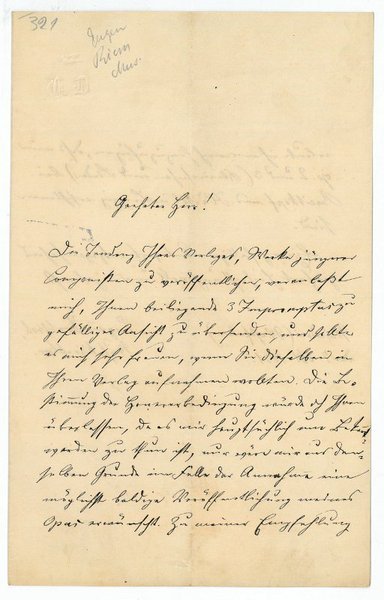 321
Eugen
Geehrter Herr!
Die Tendenz Ihres Verlages, Werke jüngerer
Componisten zu veröffentlichen, veranlaßt
mich, Ihnen beiliegende 3 Impromptus zu
gefälliger Ansicht zu übersenden, und sollte
es mich sehr freuen, wenn Sie dieselben in
Ihren Verlag aufnehmen wollten. Die Be-
stimmung der Honorarbedingung würde ich Ihnen
überlassen, da es mir hauptsächlich um Bekannt
werden zu thun ist, nur wäre mir aus dem-
selben Grunde im Falle der Annahme eine
möglichst baldige Veröffentlichung meines
Opus erwünscht. Zu meiner Empfehlung